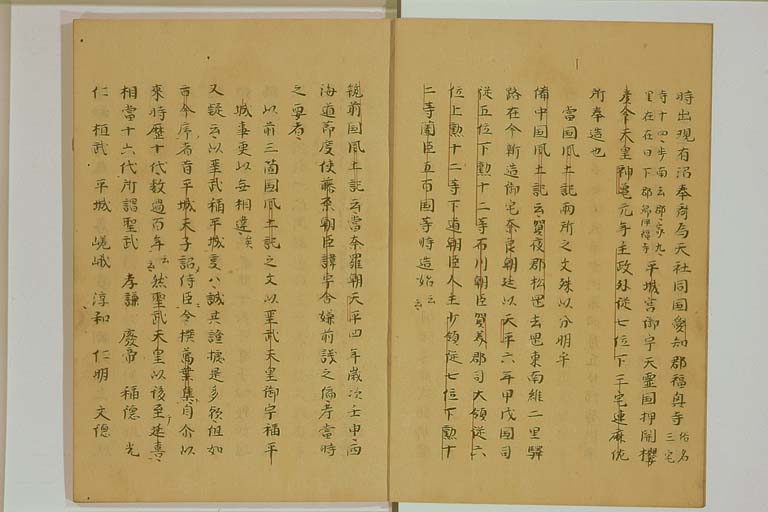 時出現有沼奉齋為天社同国愛知郡福興寺俗名三宅
寺十四步南去郡家九里在在日下郡郷伊福寺平城宮御宇天霊国押開櫻
彦命天皇神亀元年主政外従七位下三宅連麻佐
所奉造也
當国風土記兩所之文殊以分明乎
備中国風土記云賀夜郡松岡去岡東南維二里驛
路在今新造御宅奈良朝廷以天平六年甲戊国司
従五位下勲十二等石川朝臣賀美郡司大領従六
位上勲十二等下道朝臣人主少領従七位下勲十
二等薗臣五百国等時造始云云
筑前国風土記云當奈羅朝天平四年歲次壬申西
海道節度使藤原朝臣諱宇合嫌前議之偏考當時
之要者
以前三箇国風土記之文以聖武天皇御宇稱平
城事更以無相違矣
又疑云以聖武稱平城變誠其證據是多後但如
古今序者昔平城天子詔侍臣令撰萬葉集自尒以
來時歷十代數過百年云云然聖武天皇以後至延喜
相當十六代所謂聖武 孝謙 廢帝 稱德 光
仁 桓武 平城 嵯峨 淳和 仁明 文德